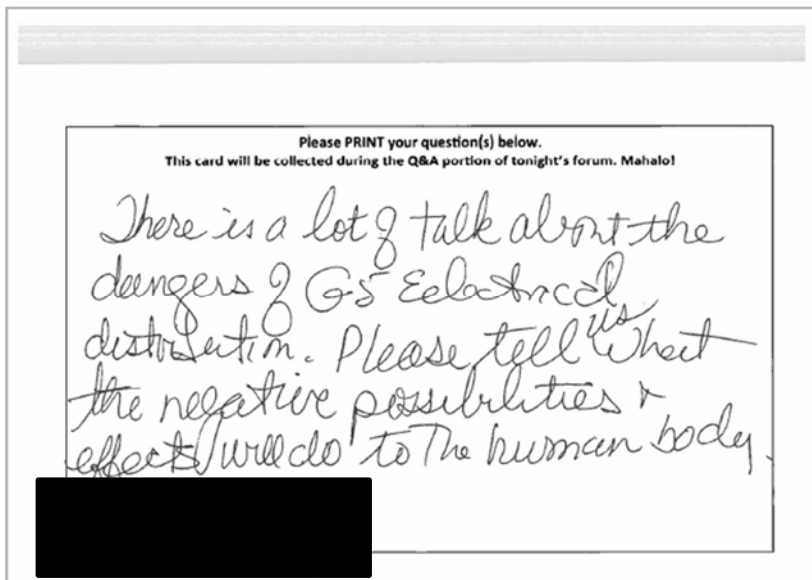 Please PRINT your question(s) below.
This card will be collected during the Q&A portion of tonight's forum. Mahalo!
There is a lot of talk about the
dangers of G5 Eelectrical
distribution. Please tell us what
the negative possibilities &
effects will do to the human body.